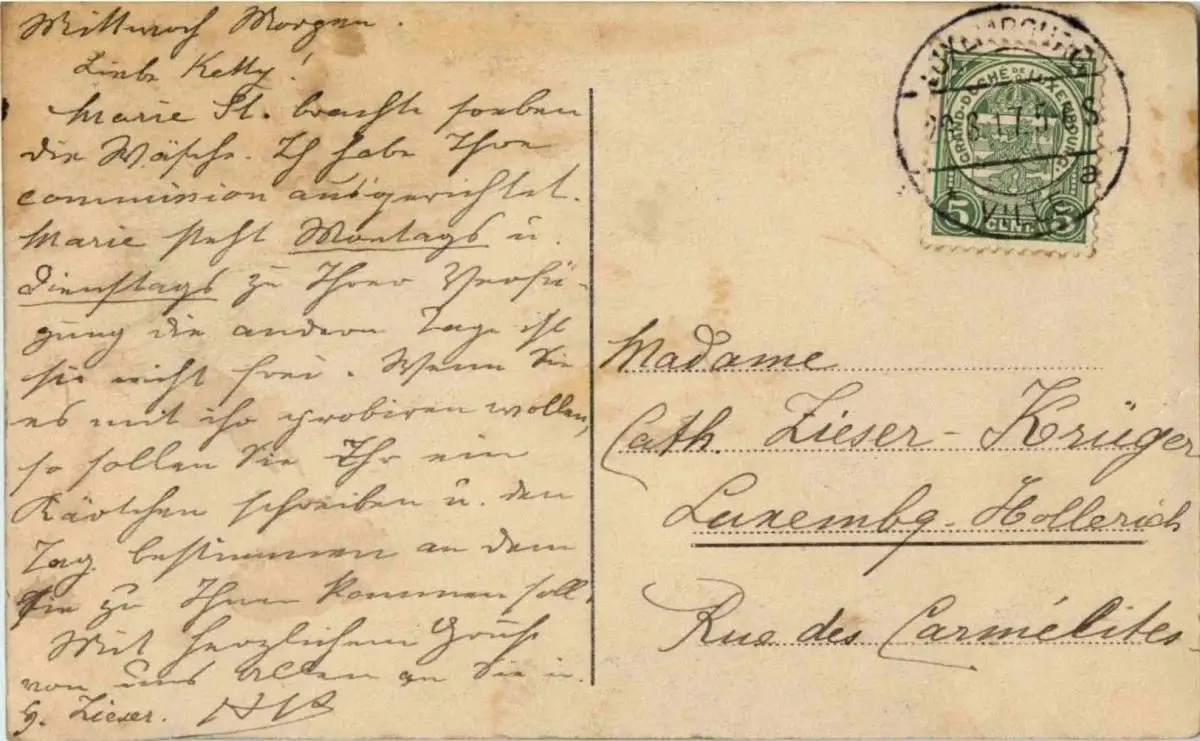 Mittwoch Morgen.
Liebe Ketty!
Marie St. brachte soeben
die Wäsche. Ich habe Ihre
commission ausgerichtet.
Marie steht Montags u.
Dienstags zu Ihrer Verfü-
gung die andern Tage ist
sie nicht frei. Wenn Sie
es mit ihr probiren wollen,
so sollen Sie Ihr ein
Kärtchen schreiben u. den
Tag bestimmen an dem
Sie zu Ihnen kommen soll.
Mit herzlichem Gruß
von uns Allen an Sie u.
H. Zieser.
LUXEMBOURG
VILLE
GRAND-DUCHÉ DE LUXEMBOURG
5 CENT. 5
Madame
Cath. Zieser-Krüger
Luxembg-Hollerich
Rue des Carmélites